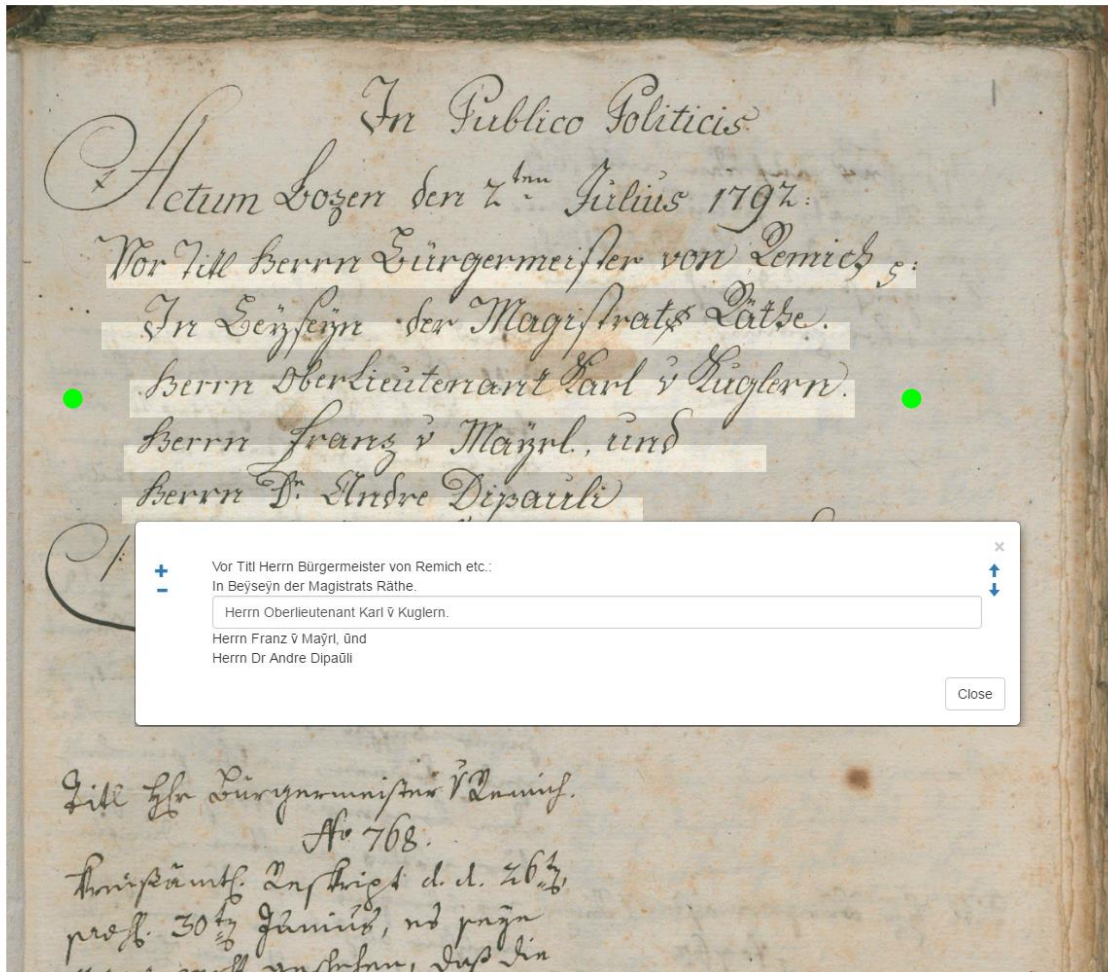 1
In Publico Politicis
Actum Bozen den 2ten Julius 1792.
Vor Titl Herrn Bürgermeister von Remich
In Beÿseÿn der Magistrats Räthe.
Herrn Oberlieutenant Karl v̄ Kuglern.
Herrn Franz v̄ Maÿrl, und
Herrn Dr. Andre Dipauli
×
+
−
Vor Titl Herrn Bürgermeister von Remich etc.:
In Beÿseÿn der Magistrats Räthe.
Herrn Oberlieutenant Karl v̄ Kuglern.
Herrn Franz v̄ Maȳrl, ūnd
Herrn Dr Andre Dipaūli
Close
Titl Hhr Bürgermeister v̄ Remich.
No 768.
Kreisämtl. Reskript d. d. 26
30 Junius, es seye
geschehen, daß die